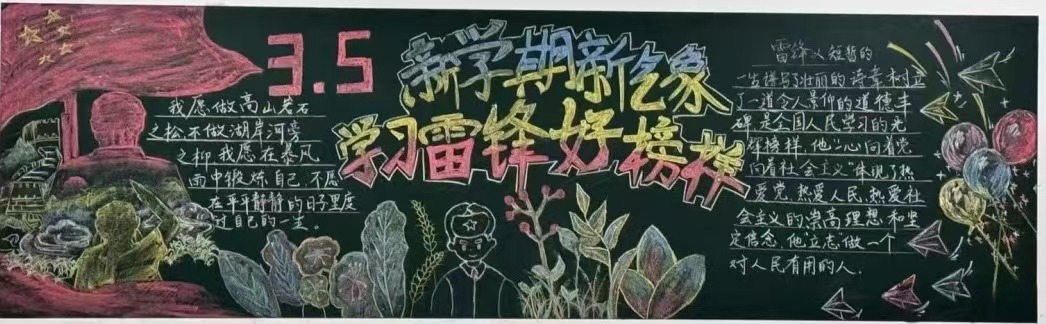 3.5
新学期新气象
学习雷锋好榜样
我愿做高山岩石
之松不做湖岸河旁
之柳我愿在暴风
雨中锻炼自己,不愿
在平平静静的日子里度
过自己的一生。
雷锋以短暂的
一生谱写了壮丽的诗章树立
了一道令人景仰的道德丰
碑,是全国人民学习的光
辉榜样,他"心向着党
向着社会主义"体现了热
爱党,热爱人民,热爱社
会主义的崇高理想和坚
定信念,他立志做一个
对人民有用的人.